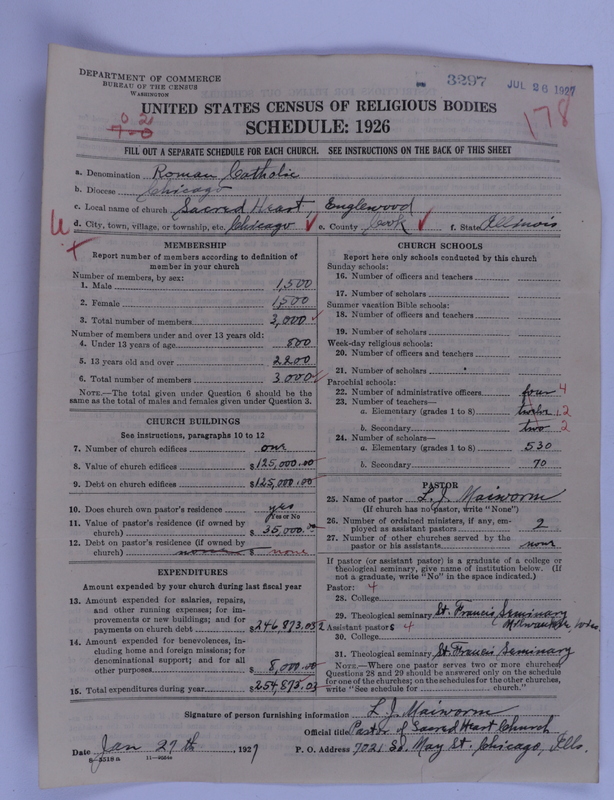 DEPARTMENT OF COMMERCE
BUREAU OF THE CENSUS
WASHINGTON
3297 JUL 26 1927
178
UNITED STATES CENSUS OF RELIGIOUS BODIES
SCHEDULE: 1926
FILL OUT A SEPARATE SCHEDULE FOR EACH CHURCH. SEE INSTRUCTIONS ON THE BACK OF THIS SHEET
a. Denomination Roman Catholic
b. Diocese Chicago
c. Local name of church Sacred Heart, Englewood
d. City, town, village, or township, etc. Chicago e. County Cook f. State Illinois
MEMBERSHIP
Report number of members according to definition of
member in your church
Number of members, by sex:
1. Male 1,500
2. Female 1,500
3. Total number of members 3,000
Number of members under and over 13 years old:
4. Under 13 years of age 800
5. 13 years old and over 2200
6. Total number of members 3,000
NOTE.—The total given under Question 6 should be the
same as the total of males and females given under Question 3.
CHURCH BUILDINGS
See instructions, paragraphs 10 to 12
7. Number of church edifices one
8. Value of church edifices $125,000.00
9. Debt on church edifices $125,000.00
10. Does church own pastor's residence yes
Yes or No
11. Value of pastor's residence (if owned by
church) $ 35,000.00
12. Debt on pastor's residence (if owned by
church) $ none
EXPENDITURES
Amount expended by your church during last fiscal year
13. Amount expended for salaries, repairs,
and other running expenses; for im-
provements or new buildings; and for
payments on church debt $246,873.03
14. Amount expended for benevolences, in-
cluding home and foreign missions; for
denominational support; and for all
other purposes $ 8,000.00
15. Total expenditures during year $254,873.03
CHURCH SCHOOLS
Report here only schools conducted by this church
Sunday schools:
16. Number of officers and teachers
17. Number of scholars
Summer vacation Bible schools:
18. Number of officers and teachers
19. Number of scholars
Week-day religious schools:
20. Number of officers and teachers
21. Number of scholars
Parochial schools:
22. Number of administrative officers four 4
23. Number of teachers—
a. Elementary (grades 1 to 8) twelve 12
b. Secondary two 2
24. Number of scholars—
a. Elementary (grades 1 to 8) 530
b. Secondary 70
PASTOR
25. Name of pastor L. J. Maiworm
(If church has no pastor, write "None")
26. Number of ordained ministers, if any, em-
ployed as assistant pastors 2
27. Number of other churches served by the
pastor or his assistants none
If pastor (or assistant pastor) is a graduate of a college or
theological seminary, give name of institution below. (If
not a graduate, write "No" in the space indicated.)
Pastor: 4
28. College
29. Theological seminary St. Francis Seminary
Milwaukee, Wisc.
2 Assistant pastors 4
30. College
31. Theological seminary St. Francis Seminary
NOTE.—Where one pastor serves two or more churches,
Questions 28 and 29 should be answered only on the schedule
for one of the churches; on the schedules for the other churches,
write "See schedule for church."
Signature of person furnishing information L. J. Maiworm
Official title Pastor of Sacred Heart Church
Date Jan 27th, 1927 P. O. Address 7021 So. May St. Chicago, Ills.
8-3518a 11-9664